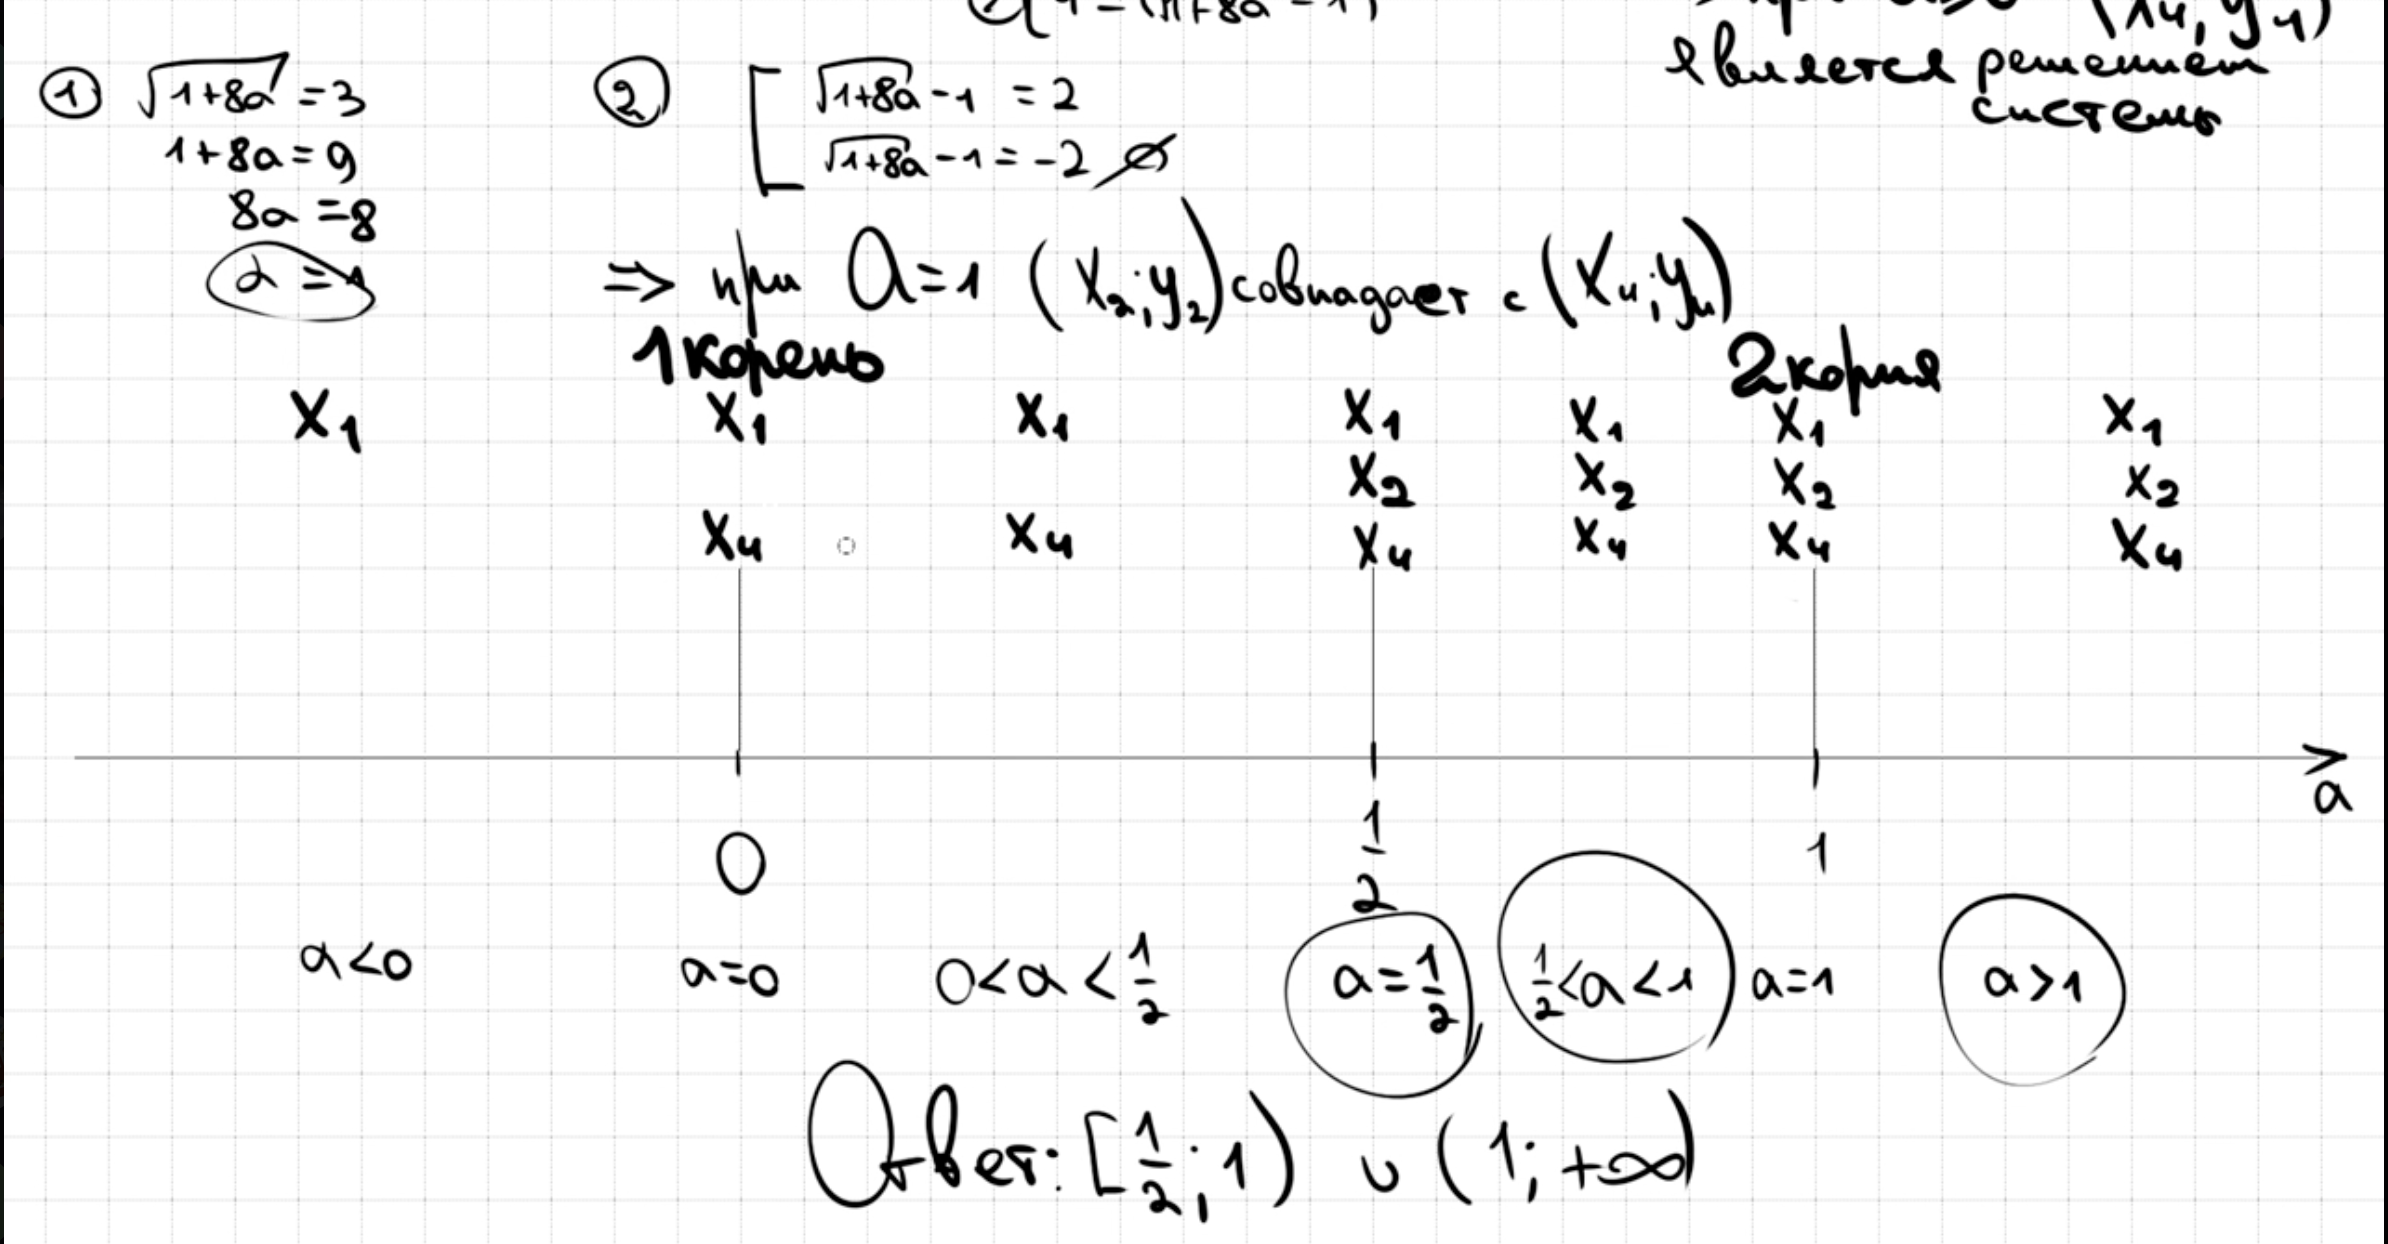 ② { 4 = (√1+8a - 1)
(x₄, y₄)
является решением
системы
① √1+8a = 3
1+8a = 9
8a = 8
a = 1
② [ √1+8a - 1 = 2
√1+8a - 1 = -2 ∅
=> при a = 1 (x₂; y₂) совпадает с (x₄; y₄)
1 корень 2 корня
x₁ x₁ x₁ x₁ x₁ x₁ x₁
x₂ x₂ x₂ x₂
x₄ x₄ x₄ x₄ x₄ x₄
a
0 1/2 1
a<0 a=0 0<a<1/2 a=1/2 1/2<a<1 a=1 a>1
Ответ: [1/2; 1) ∪ (1; +∞)